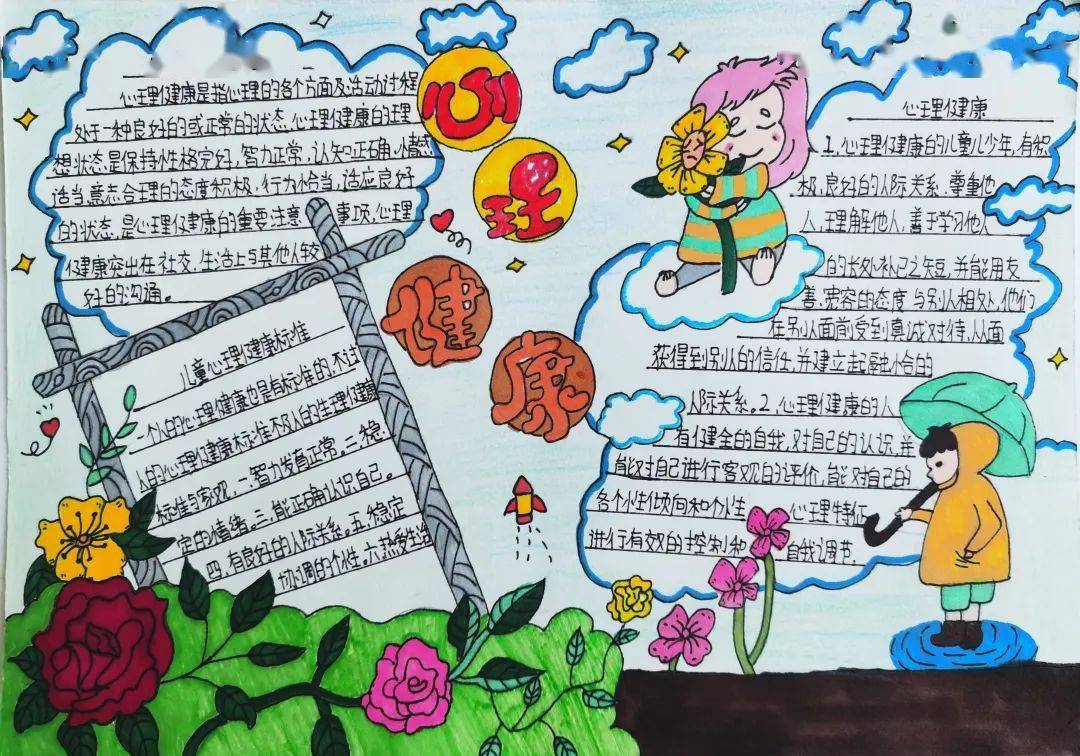 心理健康
心理健康是指心理的各个方面及活动过程
处于一种良好的或正常的状态。心理健康的理
想状态是保持性格完好,智力正常,认知正确,情感
适当,意志合理的态度积极,行为恰当,适应良好
的状态,是心理健康的重要注意 事项,心理
健康突出在社交,生活上与其他人较
好的沟通。
儿童心理健康标准
一个人的心理健康也是有标准的,不过
人的心理健康标准不及人的生理健康
标准与客观,一.智力发育正常。二.稳
定的情绪。三.能正确认识自己。
四.有良好的人际关系。五.稳定
协调的个性。六.热爱生活
心理健康
1.心理健康的儿童少年,有积
极,良好的人际关系,尊重他
人,理解他人,善于学习他人
的长处补己之短,并能用友
善、宽容的态度与别人相处,他们
在别人面前受到真诚对待,从面
获得到别人的信任,并建立起融洽的
人际关系。2.心理健康的人
有健全的自我,对自己的认识,并
能对自己进行客观的评价,能对自己的
各个性倾向和个性 心理特征
进行有效的控制和 自我调节.